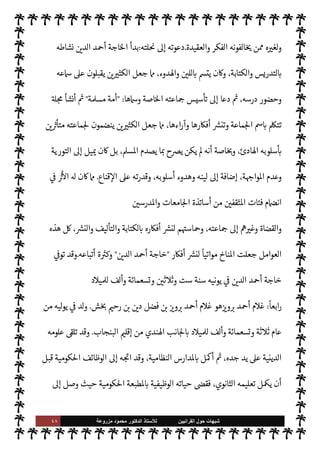 ولغيره ممن يخالفونه الفكر والعقيدة.دعوته إلى نحلته:بدأ الخاجة أحمد الدين نشاطه
بالتدريس والكتابة، وكان يتسم باللين والهدوء، مما جعل الكثيرين يقبلون على سماعه
وحضور درسه، ثم دعا إلى تأسيس جماعته الخاصة وسماها: "أمة مسلمة" ثم أنشأ مجلة
تتكلم باسم الجماعة وتنشر أفكارها وآراءها، مما جعل الكثيرين ينضمون لجماعته متأثرين
بأسلوبه الهادئ، وبخاصة أنه لم يكن يصرح بما يصدم المسلم، بل كان يميل إلى التورية
وعدم المواجهة، إضافة إلى لينه وهدوء أسلوبه، وقدرته على الإقناع. مما كان له الأثر في
انضمام فئات المثقفين من أساتذة الجامعات والمدرسين
والقضاة وغيرهم إلى جماعته، وحماستهم لنشر أفكاره بالكتابة والتأليف والنشر، كل هذه
العوامل جعلت المناخ مواتياً لنشر أفكار "خاجة أحمد الدين" وكثرة أتباعه.وقد توفي
خاجة أحمد الدين في يونيه سنة ست وثلاثين وتسعمائة وألف للميلاد
رابعاً، غلام أحمد برويزهو غلام أحمد برويز بن فضل دين بن رحيم بخش. ولد في يوليه من
عام ثلاثة وتسعمائة وألف للميلاد بالجانب الهندي من إقليم البنجاب. وقد تلقى علومه
الدينية على يد جده، ثم أكمل بالمدارس النظامية، وقد اتجه إلى الوظائف الحكومية قبل
أن يكمل تعليمه الثانوي، فقضى حياته الوظيفية بالمطبعة الحكومية حيث وصل إلى
شبهات حول القرآنيين للأستاذ الدكتور محمود مزروعة ٤١